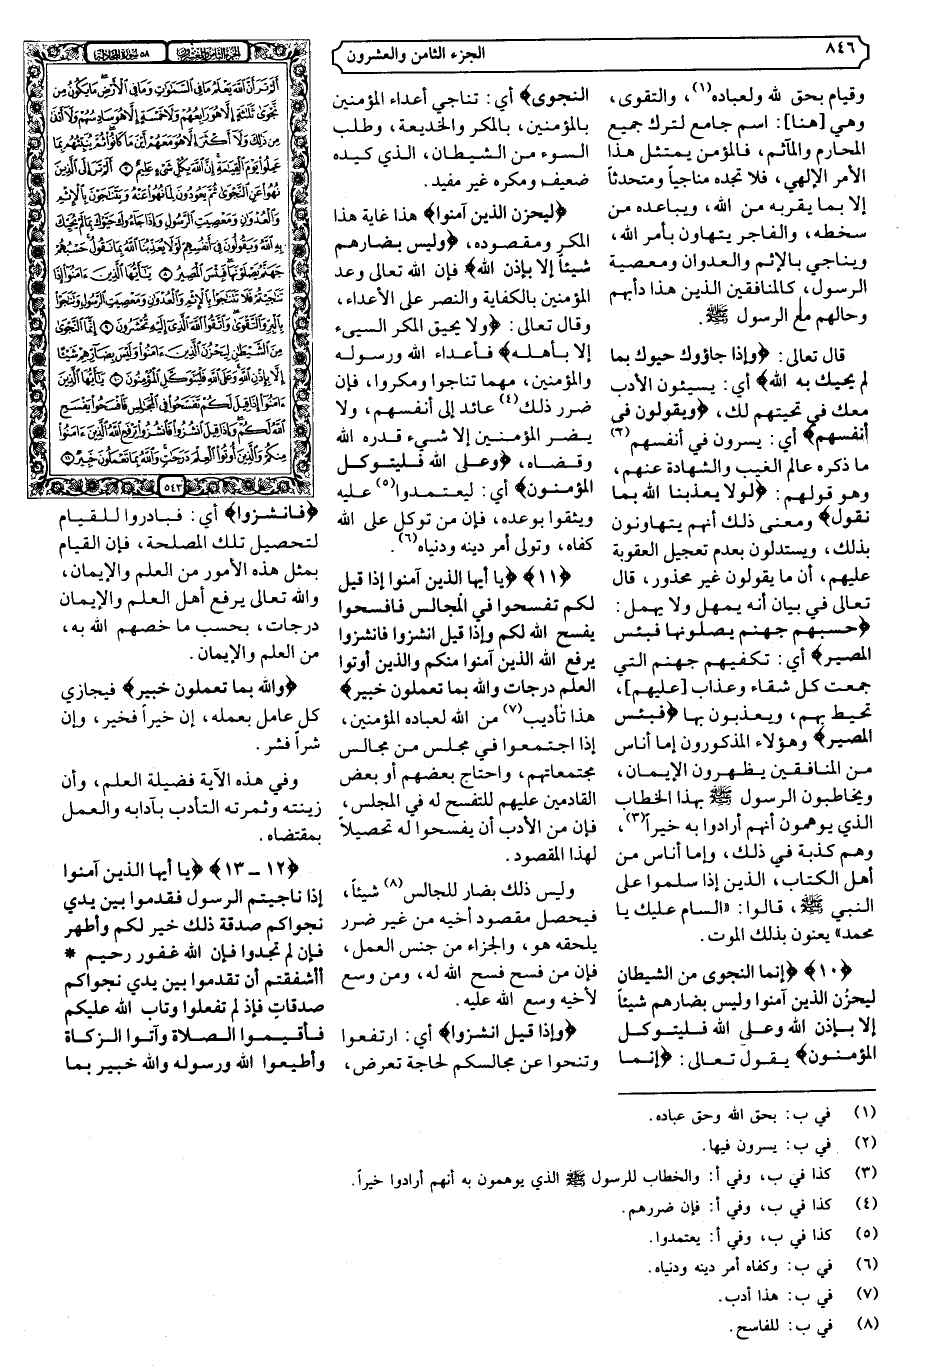 ٨٤٦
الجزء الثامن والعشرون
وقيام بحق لله ولعباده(١)، والتقوى،
وهي [هنا]: اسم جامع لترك جميع
المحارم والمآثم، فالمؤمن يمتثل هذا
الأمر الإلهي، فلا تجده مناجياً ومتحدثاً
إلا بما يقربه من الله، ويباعده من
سخطه، والفاجر يتهاون بأمر الله،
ويناجي بالإثم والعدوان ومعصية
الرسول، كالمنافقين الذين هذا دأبهم
وحالهم مع الرسول ﷺ.
قال تعالى: ﴿وإذا جاؤوك حيوك بما
لم يحيك به الله﴾ أي: يسيئون الأدب
معك في تحيتهم لك، ﴿ويقولون في
أنفسهم﴾ أي: يسرون في أنفسهم(٢)
ما ذكره عالم الغيب والشهادة عنهم،
وهو قولهم: ﴿لولا يعذبنا الله بما
نقول﴾ ومعنى ذلك أنهم يتهاونون
بذلك، ويستدلون بعدم تعجيل العقوبة
عليهم، أن ما يقولون غير محذور، قال
تعالى في بيان أنه يمهل ولا يهمل:
﴿حسبهم جهنم يصلونها فبئس
المصير﴾ أي: تكفيهم جهنم التي
جمعت كل شقاء وعذاب [عليهم]،
تحيط بهم، ويعذبون بها ﴿فبئس
المصير﴾ وهؤلاء المذكورون إما أناس
من المنافقين يظهرون الإيمان،
ويخاطبون الرسول ﷺ بهذا الخطاب
الذي يوهمون أنهم أرادوا به خيراً(٣)،
وهم كذبة في ذلك، وإما أناس من
أهل الكتاب، الذين إذا سلموا على
النبي ﷺ، قالوا: «السام عليك يا
محمد» يعنون بذلك الموت.
﴿١٠﴾ ﴿إنما النجوى من الشيطان
ليحزُن الذين آمنوا وليس بضارهم شيئاً
إلا بإذن الله وعلى الله فليتوكل
المؤمنون﴾ يقول تعالى: ﴿إنما
النجوى﴾ أي: تناجي أعداء المؤمنين
بالمؤمنين، بالمكر والخديعة، وطلب
السوء من الشيطان، الذي كيده
ضعيف ومكره غير مفيد.
﴿ليحزن الذين آمنوا﴾ هذا غاية هذا
المكر ومقصوده، ﴿وليس بضارهم
شيئاً إلا بإذن الله﴾ فإن الله تعالى وعد
المؤمنين بالكفاية والنصر على الأعداء،
وقال تعالى: ﴿ولا يحيق المكر السيىء
إلا بأهله﴾ فأعداء الله ورسوله
والمؤمنين، مهما تناجوا ومكروا، فإن
ضرر ذلك(٤) عائد إلى أنفسهم، ولا
يضر المؤمنين إلا شيء قدره الله
وقضاه، ﴿وعلى الله فليتوكل
المؤمنون﴾ أي: ليعتمدوا(٥) عليه
ويثقوا بوعده، فإن من توكل على الله
كفاه، وتولى أمر دينه ودنياه(٦).
﴿١١﴾ ﴿يا أيها الذين آمنوا إذا قيل
لكم تفسحوا في المجالس فافسحوا
يفسح الله لكم وإذا قيل انشزوا فانشزوا
يرفع الله الذين آمنوا منكم والذين أوتوا
العلم درجات والله بما تعملون خبير﴾
هذا تأديب(٧) من الله لعباده المؤمنين،
إذا اجتمعوا في مجلس من مجالس
مجتمعاتهم، واحتاج بعضهم أو بعض
القادمين عليهم للتفسح له في المجلس،
فإن من الأدب أن يفسحوا له تحصيلاً
لهذا المقصود.
وليس ذلك بضار للجالس(٨) شيئاً،
فيحصل مقصود أخيه من غير ضرر
يلحقه هو، والجزاء من جنس العمل،
فإن من فسح فسح الله له، ومن وسع
لأخيه وسع الله عليه.
﴿وإذا قيل انشزوا﴾ أي: ارتفعوا
وتنحوا عن مجالسكم لحاجة تعرض،
الجزء الثامن والعشرون
٥٨ سورة المجادلة
ألم تر أن الله يعلم ما في السماوات وما في الأرض ما يكون من
نجوى ثلاثة إلا هو رابعهم ولا خمسة إلا هو سادسهم ولا أدنى
من ذلك ولا أكثر إلا هو معهم أين ما كانوا ثم ينبئهم بما
عملوا يوم القيامة إن الله بكل شيء عليم ٧ ألم تر إلى الذين
نهوا عن النجوى ثم يعودون لما نهوا عنه ويتناجون بالإثم
والعدوان ومعصيت الرسول وإذا جاءوك حيوك بما لم يحيك
به الله ويقولون في أنفسهم لولا يعذبنا الله بما نقول حسبهم
جهنم يصلونها فبئس المصير ٨ يا أيها الذين ءامنوا إذا
تناجيتم فلا تتناجوا بالإثم والعدوان ومعصيت الرسول وتناجوا
بالبر والتقوى واتقوا الله الذي إليه تحشرون ٩ إنما النجوى
من الشيطان ليحزن الذين ءامنوا وليس بضارهم شيئا
إلا بإذن الله وعلى الله فليتوكل المؤمنون ١٠ يا أيها الذين
ءامنوا إذا قيل لكم تفسحوا في المجالس فافسحوا يفسح
الله لكم وإذا قيل انشزوا فانشزوا يرفع الله الذين ءامنوا
منكم والذين أوتوا العلم درجات والله بما تعملون خبير ١١
٥٤٣
﴿فانشزوا﴾ أي: فبادروا للقيام
لتحصيل تلك المصلحة، فإن القيام
بمثل هذه الأمور من العلم والإيمان،
والله تعالى يرفع أهل العلم والإيمان
درجات، بحسب ما خصهم الله به،
من العلم والإيمان.
﴿والله بما تعملون خبير﴾ فيجازي
كل عامل بعمله، إن خيراً فخير، وإن
شراً فشر.
وفي هذه الآية فضيلة العلم، وأن
زينته وثمرته التأدب بآدابه والعمل
بمقتضاه.
﴿١٢ ـ ١٣﴾ ﴿يا أيها الذين آمنوا
إذا ناجيتم الرسول فقدموا بين يدي
نجواكم صدقة ذلك خير لكم وأطهر
فإن لم تجدوا فإن الله غفور رحيم *
أأشفقتم أن تقدموا بين يدي نجواكم
صدقاتٍ فإذ لم تفعلوا وتاب الله عليكم
فأقيموا الصلاة وآتوا الزكاة
وأطيعوا الله ورسوله والله خبير بما
(١) في ب: بحق الله وحق عباده.
(٢) في ب: يسرون فيها.
(٣) كذا في ب، وفي أ: والخطاب للرسول ﷺ الذي يوهمون به أنهم أرادوا خيراً.
(٤) كذا في ب، وفي أ: فإن ضررهم.
(٥) كذا في ب، وفي أ: يعتمدوا.
(٦) في ب: وكفاه أمر دينه ودنياه.
(٧) في ب: هذا أدب.
(٨) في ب: للفاسح.